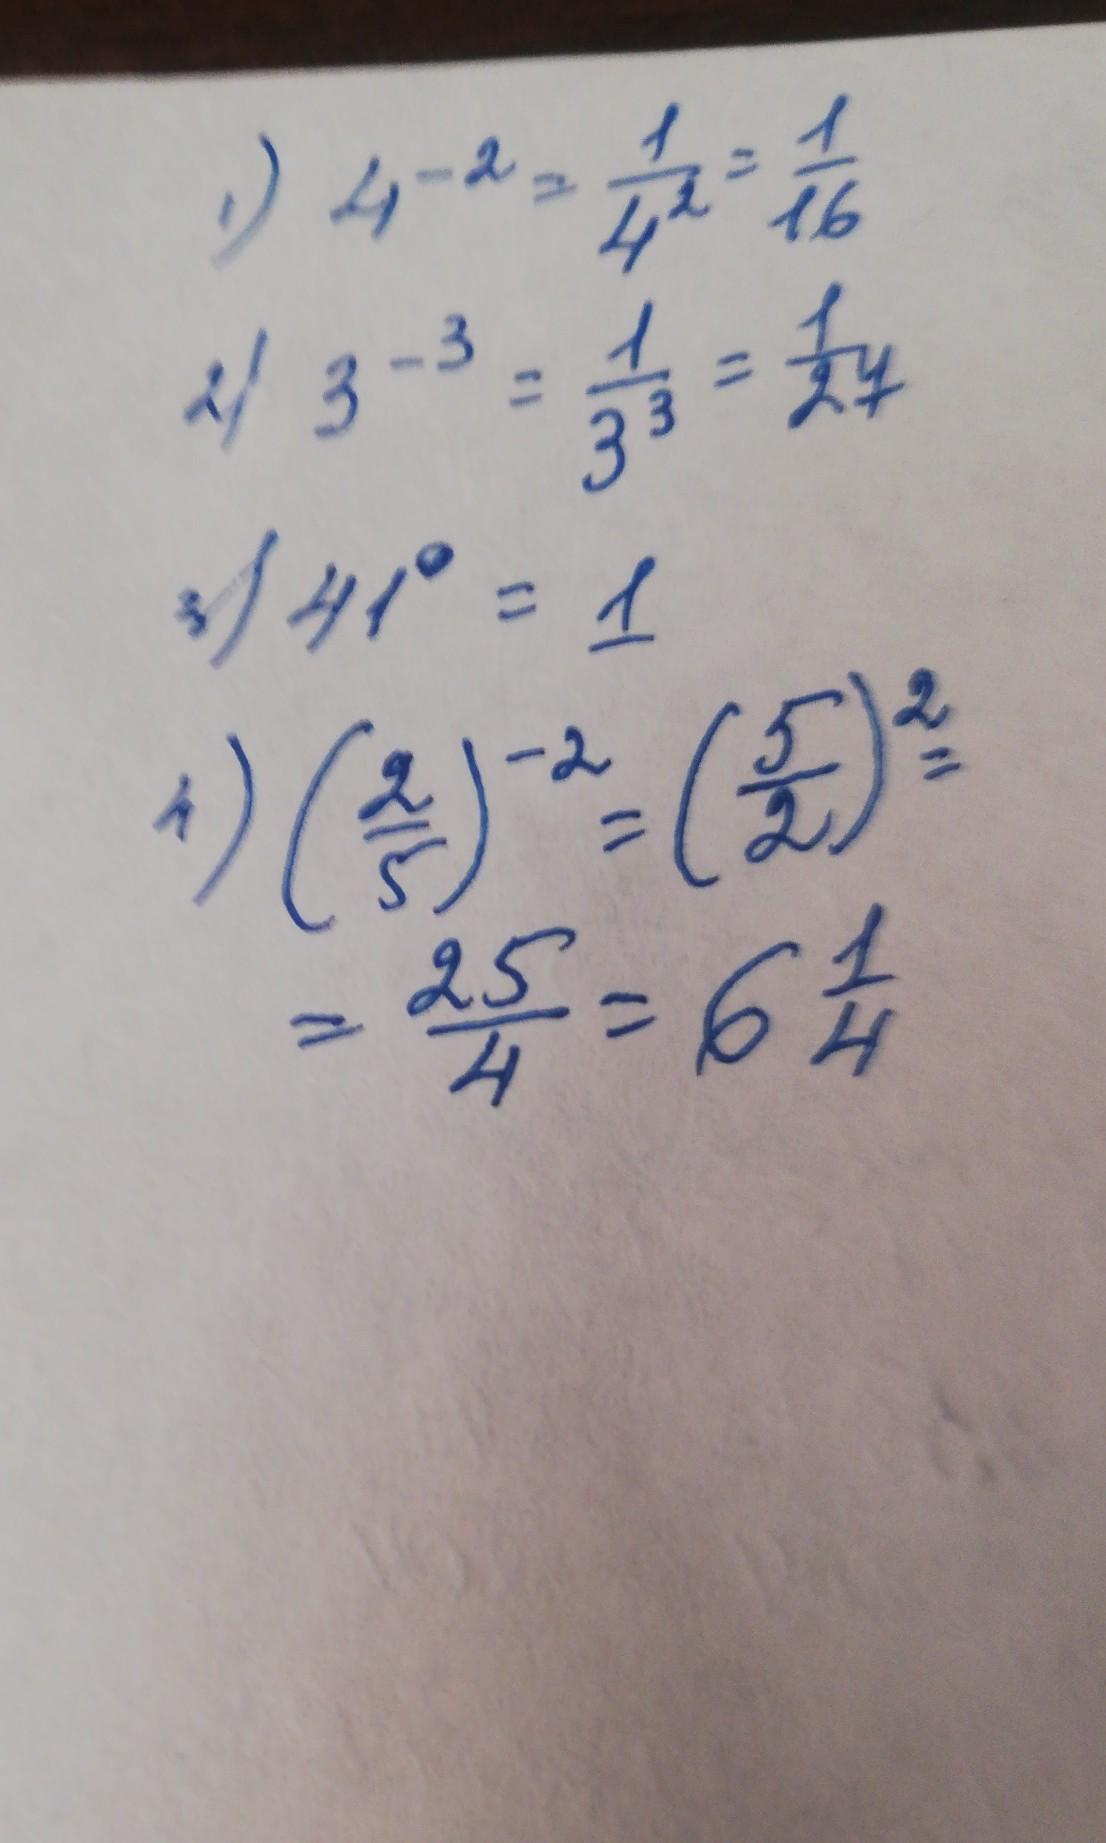 1) 4^{-2} = \frac{1}{4^2} = \frac{1}{16}
2) 3^{-3} = \frac{1}{3^3} = \frac{1}{27}
3) 41^0 = 1
4) (\frac{2}{5})^{-2} = (\frac{5}{2})^2 =
= \frac{25}{4} = 6 \frac{1}{4}